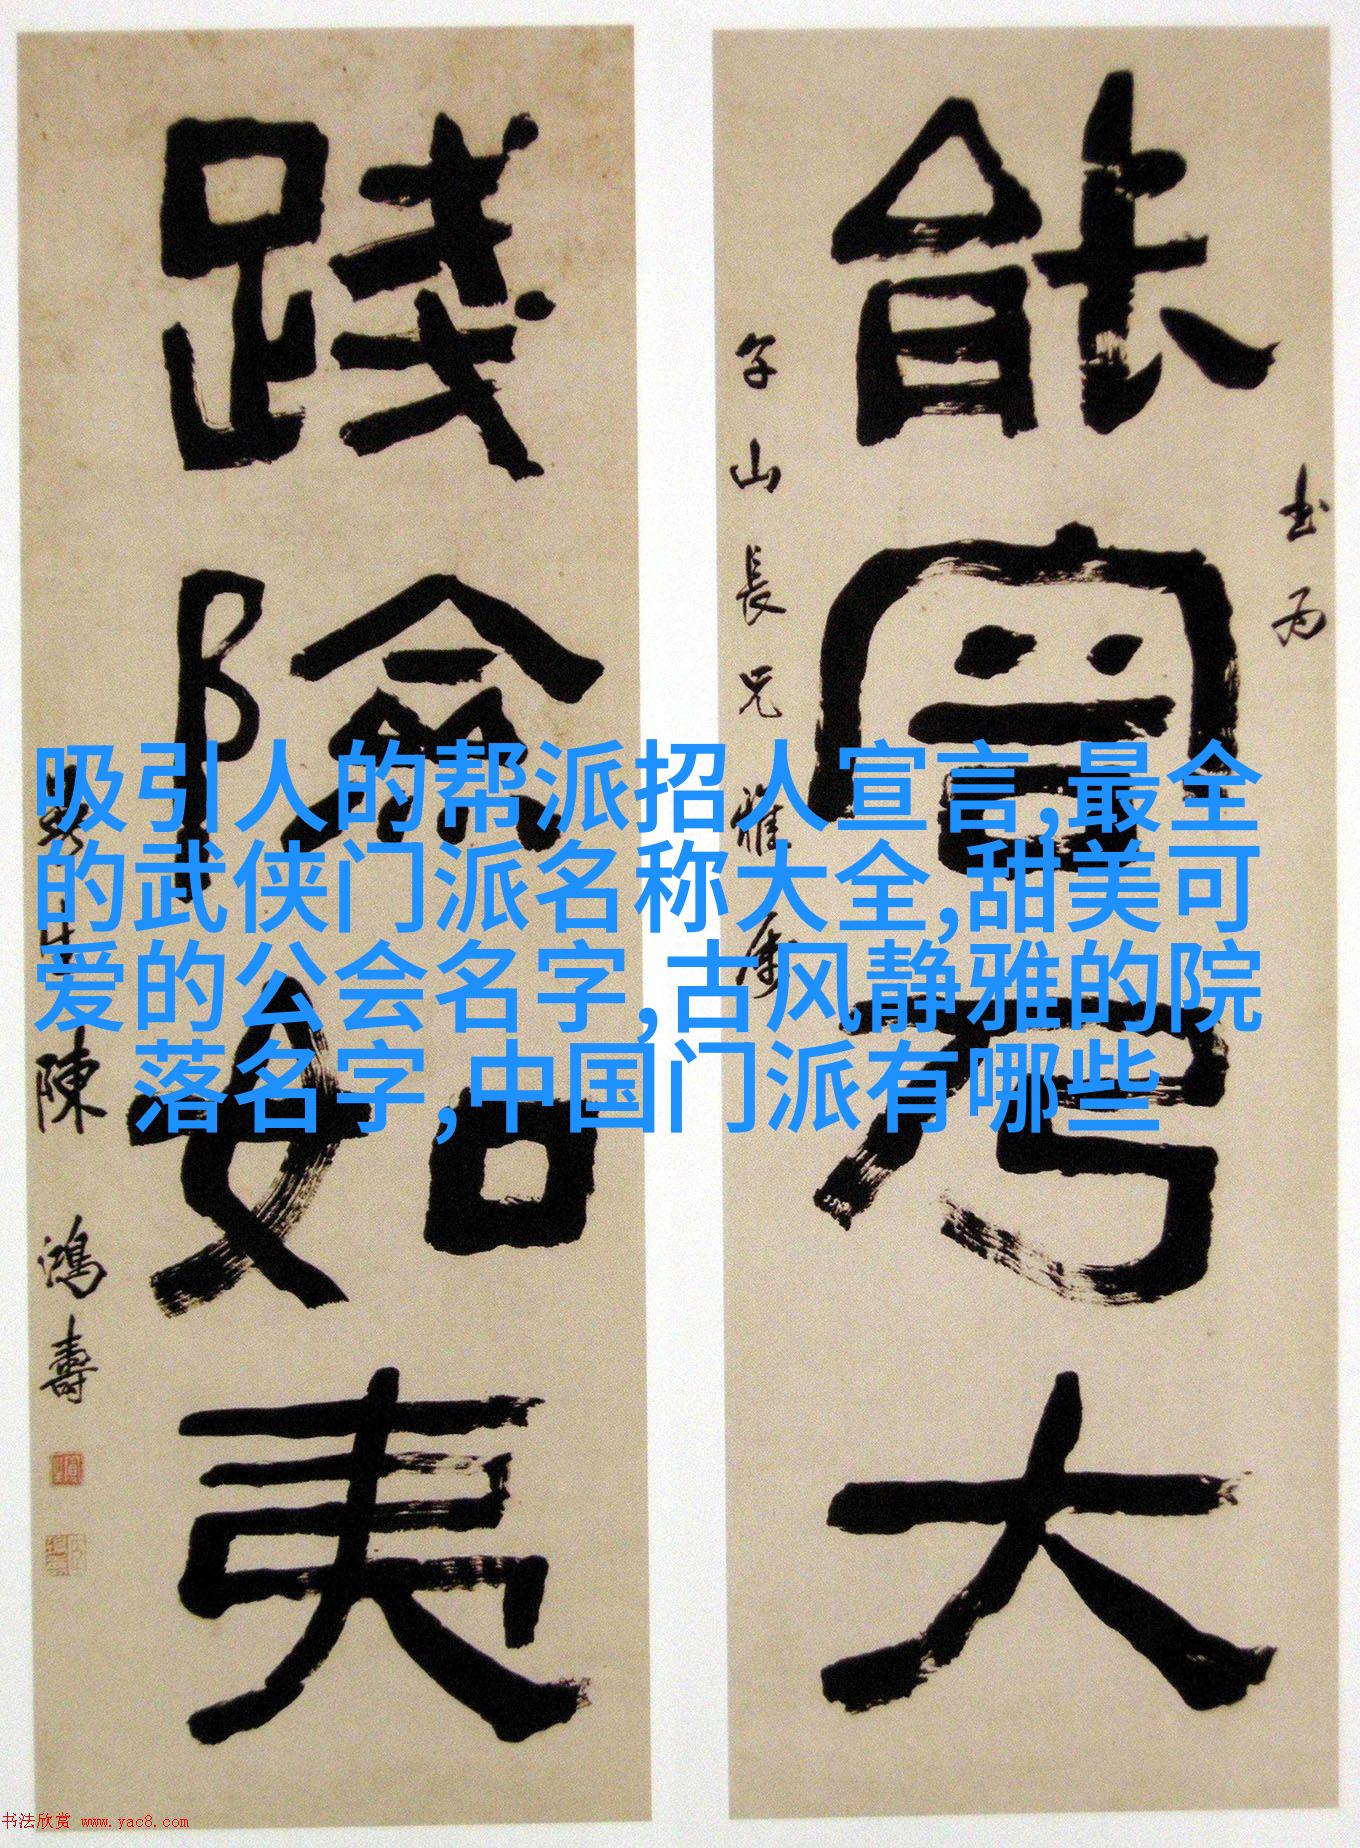 書為
能 乃大
子山長兄雅屬
踐險如夷
曼生陳鴻壽
吸引人的帮派招人宣言,最全
的武侠门派名称大全,甜美可
爱的公会名字,古风静雅的院
落名字,中国门派有哪些
书法欣赏 www.yac8.com